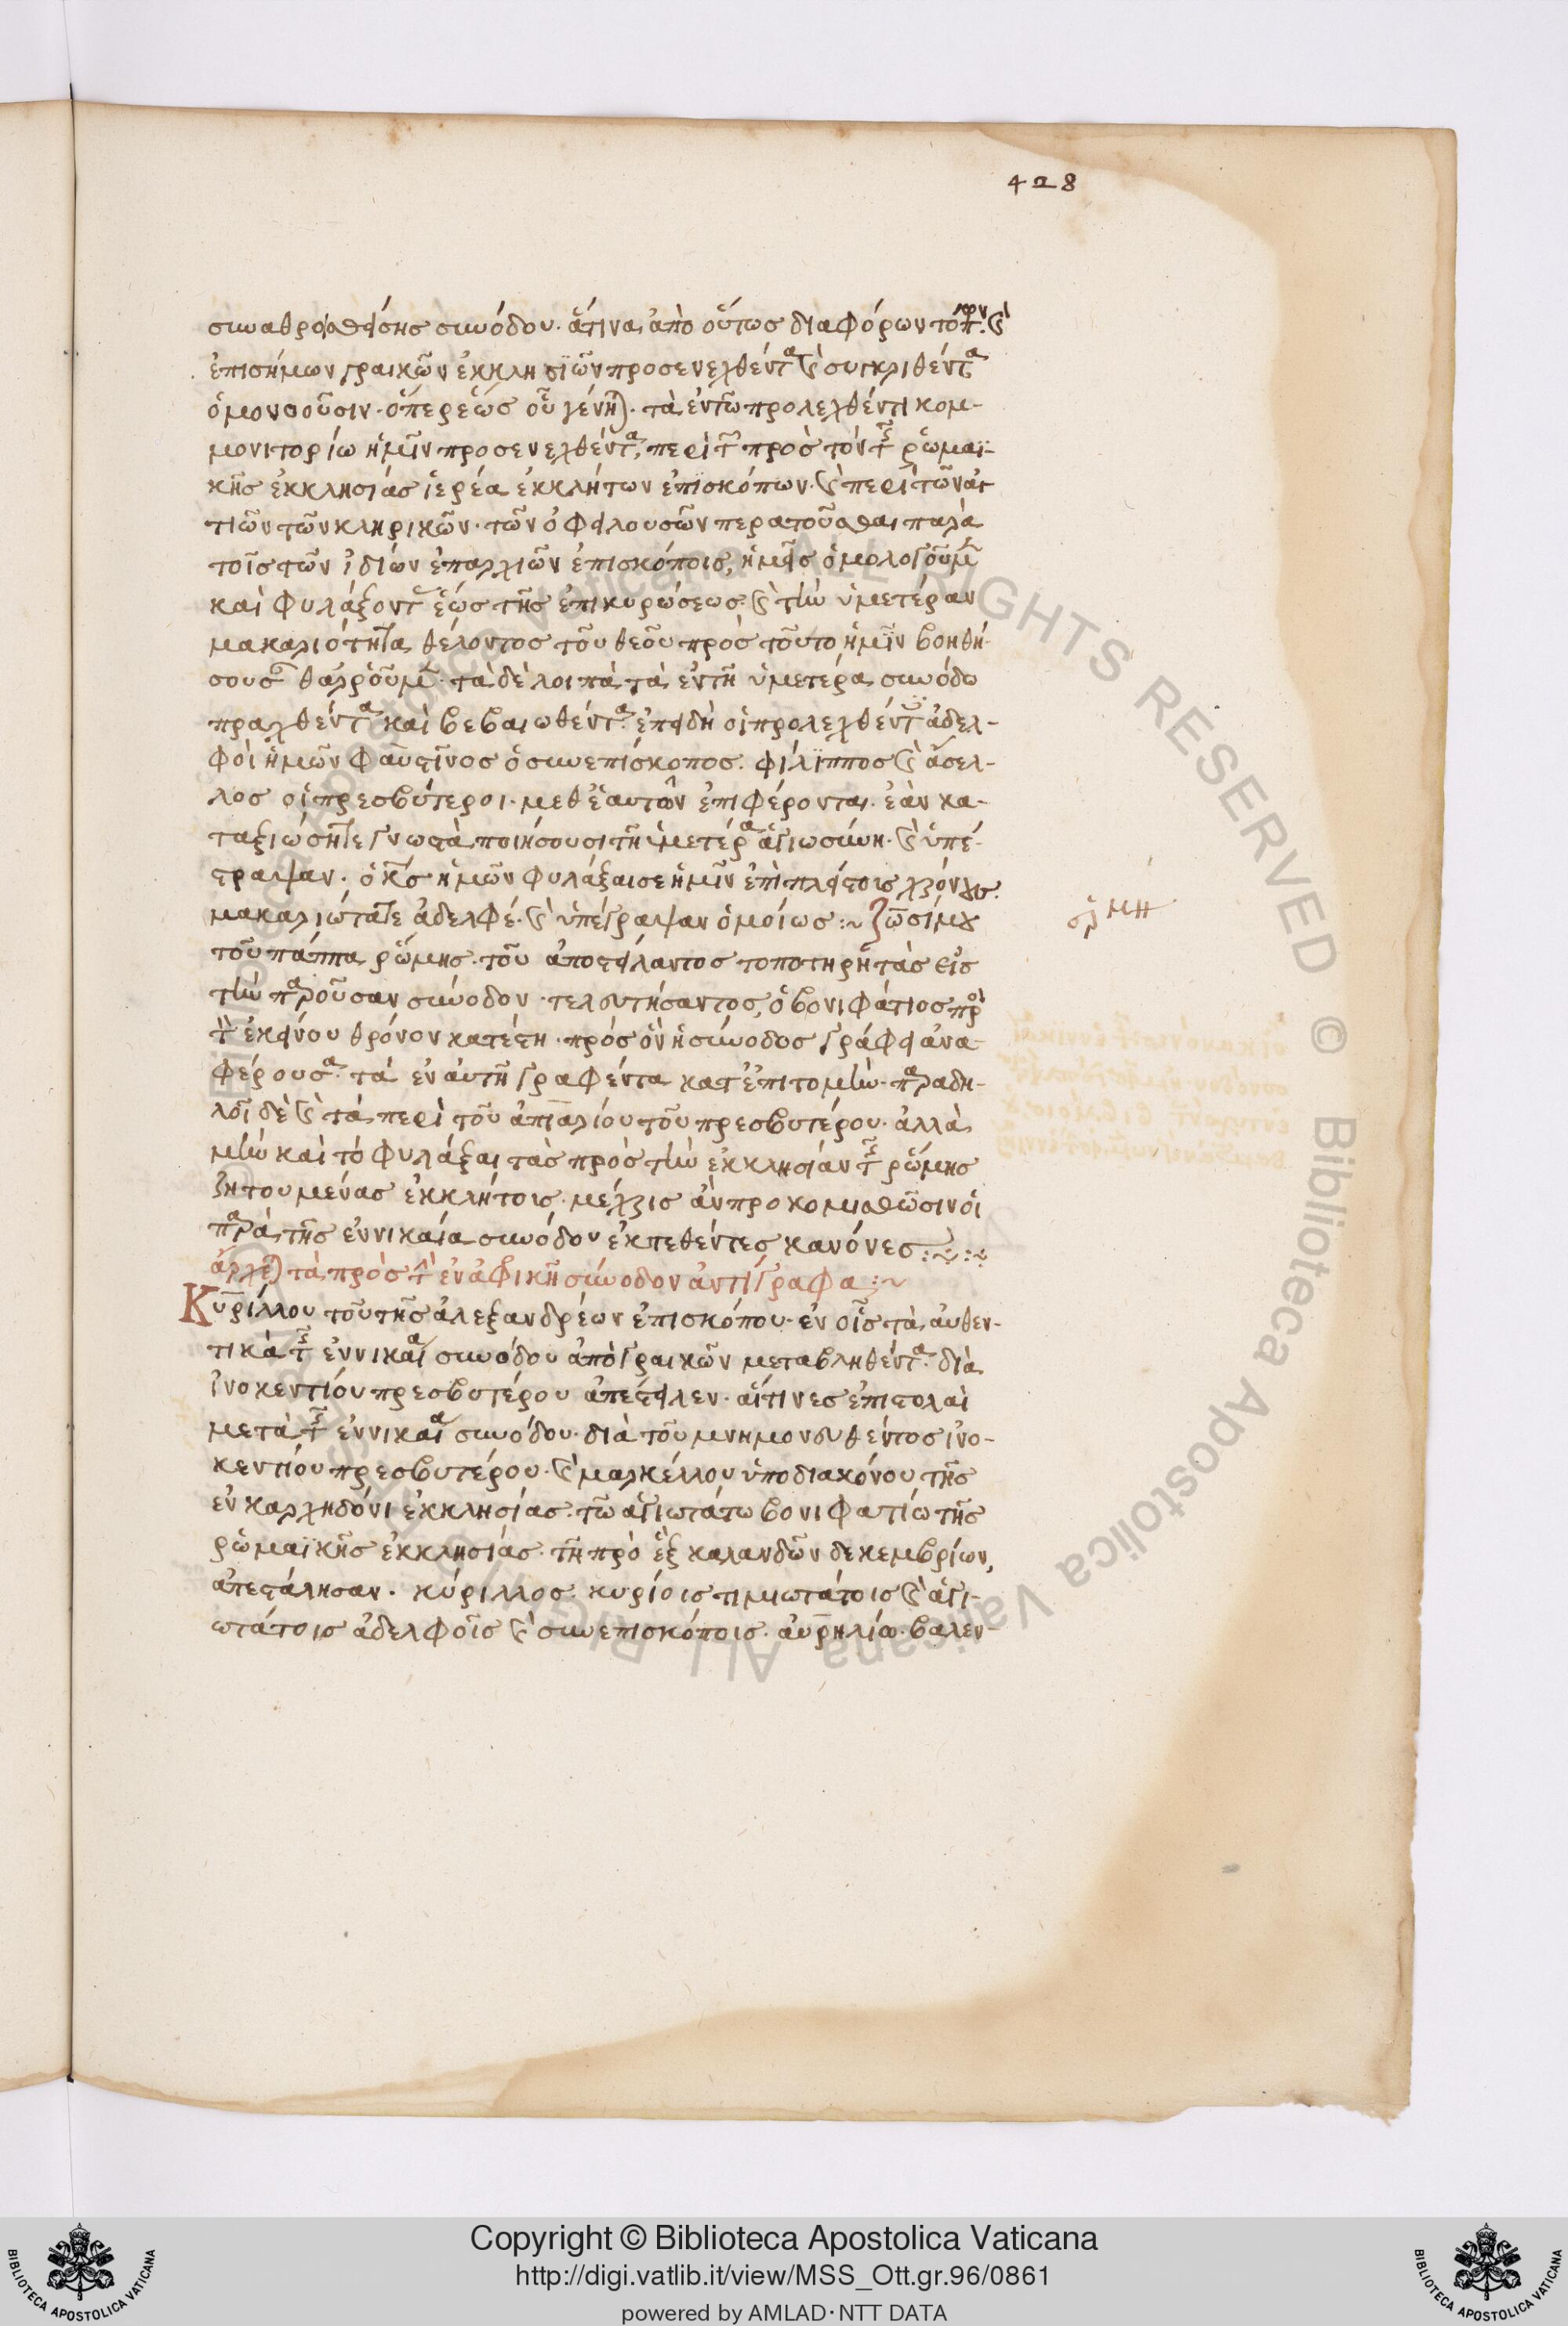 428
συναθροισθείσης συνόδου· ἅτινα ἀπὸ οὕτως διαφόρων τόπων. καὶ
ἐπισήμων γραικῶν ἐκκλησιῶν προσενεχθέντα καὶ συγκριθέντα
ὁμονοοῦσιν· ὅπερ ἕως οὗ γένηται· τὰ ἐν τῶ προλεχθέντι κομ-
μονιτορίω ἡμῖν προσενεχθέντα, περὶ τῶν πρὸς τὸν τῆς ῥωμαϊ-
κῆς ἐκκλησίας ἱερέα ἐκκλήτων ἐπισκόπων· καὶ περὶ τῶν αἰ-
τιῶν τῶν κληρικῶν· τῶν ὀφειλουσῶν περατοῦσθαι παρὰ
τοῖς τῶν ἰδίων ἐπαρχιῶν ἐπισκόποις, ἡμεῖς ὁμολογοῦμεν
καὶ φυλάξοντες ἕως τῆς ἐπικυρώσεως. καὶ τὴν ὑμετέραν
μακαριότητα θέλοντος τοῦ θεοῦ πρὸς τοῦτο ἡμῖν βοηθή-
σουσαν θαρροῦμεν· τὰ δὲ λοιπὰ τὰ ἐν τῆ ὑμετέρα συνόδω
πραχθέντα καὶ βεβαιωθέντα. ἐπειδὴ οἱ προλεχθέντες ἀδελ-
φοὶ ἡμῶν φαυστῖνος ὁ συνεπίσκοπος. φίλιππος καὶ ἄσελ-
λος οἱ πρεσβύτεροι· μεθ ἑαυτῶν ἐπιφέρονται. ἐὰν κα-
ταξιώσητε γνωστὰ ποιήσουσι τῆ ὑμετέρα ἁγιωσύνη. καὶ ὑπέ-
γραψαν· ὁ κς ἡμῶν φυλάξαι σε ἡμῖν ἐπὶ πλείστοις χρόνοις.
μακαριώτατε ἀδελφέ· καὶ ὑπέγραψαν ὁμοίως :~ Ζωσίμου
τοῦ πάππα ῥώμης· τοῦ ἀποστείλαντος τοποτηρητὰς εἰς
τὴν παροῦσαν σύνοδον· τελευτήσαντος, ὁ βονιφάτιος πρὸς
τὸν ἐκείνου θρόνον κατέστη· πρὸς ὃν ἡ σύνοδος γράφει ἀνα-
φέρουσα τὰ ἐν αὐτῆ γραφέντα κατ ἐπιτομὴν· παραδη-
λοῖ δὲ καὶ τὰ περὶ τοῦ ἀπιαρίου τοῦ πρεσβυτέρου· ἀλλὰ
μὴν καὶ τὸ φυλάξαι τὰς πρὸς τὴν ἐκκλησίαν τῆς ῥώμης
ζητουμένας ἐκκλήτοις· μέχρις ἂν προκομισθῶσιν οἱ
παρὰ τῆς ἐν νικαία συνόδου ἐκτεθέντες κανόνες :~:~
ἄρχεται τὰ πρὸς τὴν ἐν ἀφρικῆ σύνοδον ἀντίγραφα :~
Κυρίλλου τοῦ τῆς ἀλεξανδρέων ἐπισκόπου· ἐν οἷς τὰ αὐθεν-
τικὰ τῆς ἐν νικαία συνόδου ἀπὸ γραικῶν μεταβληθέντα. διὰ
ἰνοκεντίου πρεσβυτέρου ἀπέστειλεν· αἵτινες ἐπιστολαὶ
μετὰ τῆς ἐν νικαία συνόδου· διὰ τοῦ μνημονευθέντος ἰνο-
κεντίου πρεσβυτέρου· καὶ μαρκέλλου ὑποδιακόνου τῆς
ἐν καρχηδόνι ἐκκλησίας. τῶ ἁγιωτάτω βονιφατίω τῆς
ῥωμαϊκῆς ἐκκλησίας· τῆ πρὸ ἓξ καλανδῶν δεκεμβρίων,
ἀπεστάλησαν· κύριλλος. κυρίοις τιμιωτάτοις καὶ ἁγι-
ωτάτοις ἀδελφοῖς καὶ συνεπισκόποις. αὐρηλίω. βαλεν-
Copyright © Biblioteca Apostolica Vaticana
http://digi.vatlib.it/view/MSS_Ott.gr.96/0861
powered by AMLAD·NTT DATA
BIBLIOTECA APOSTOLICA VATICANA
BIBLIOTECA APOSTOLICA VATICANA